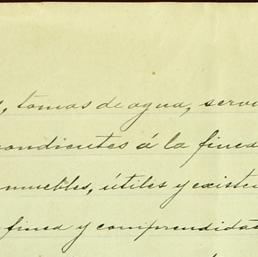 , tomas de agua, servi
ondientes á la finca
muebles, útiles y existen
finca y comprendidas